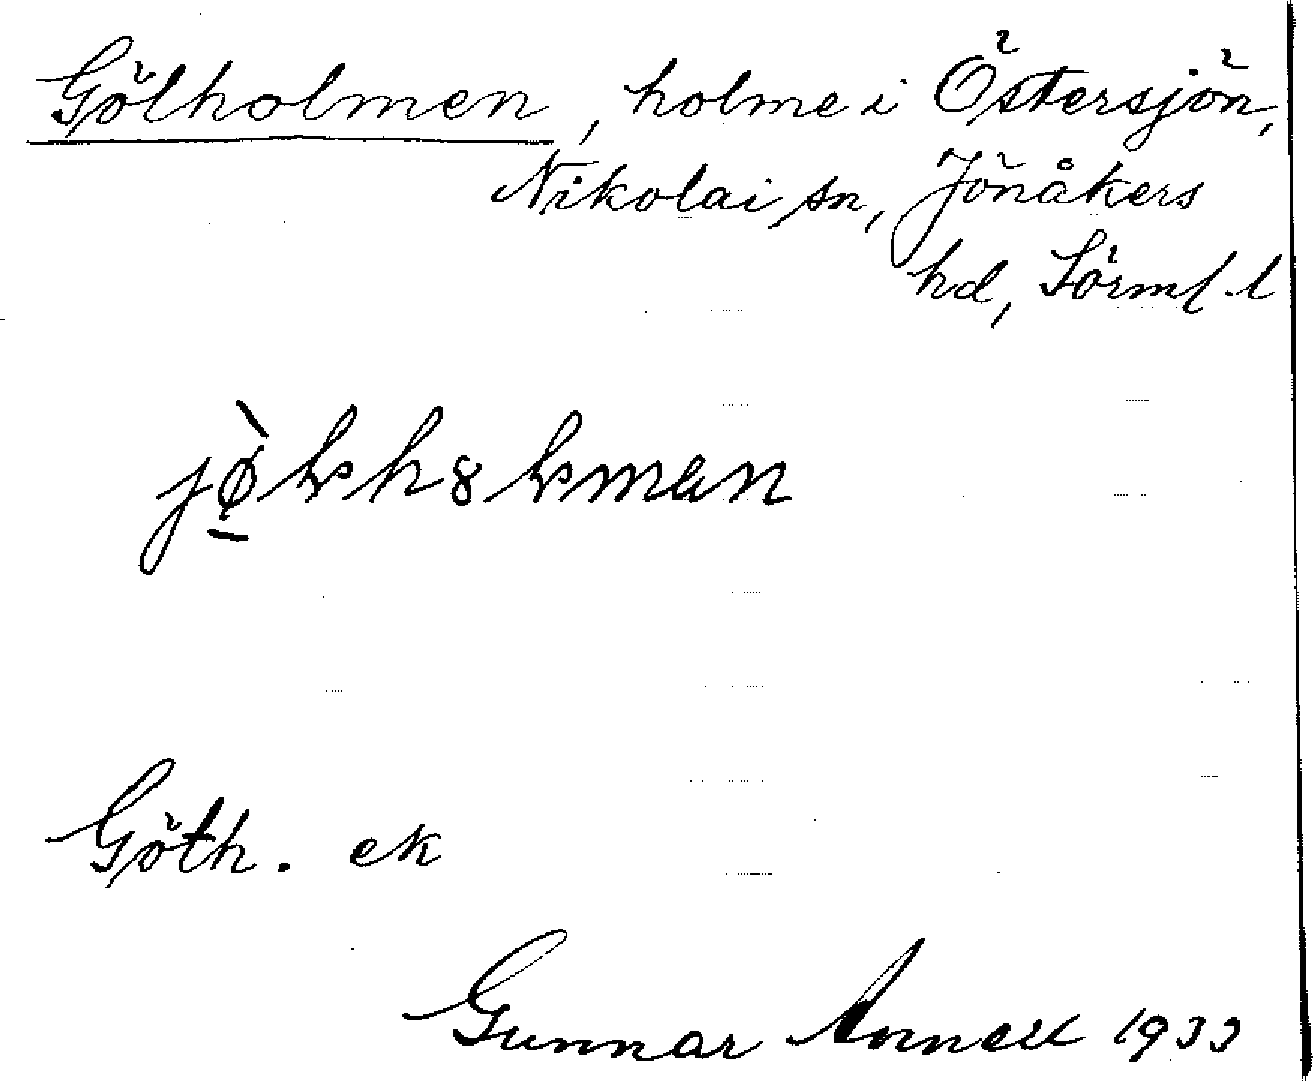 Gölholmen, holme i Östersjön,
Nikolai sn, Jönåkers
hd, Sörml l
Göth. ek
Gunnar Annell 1933